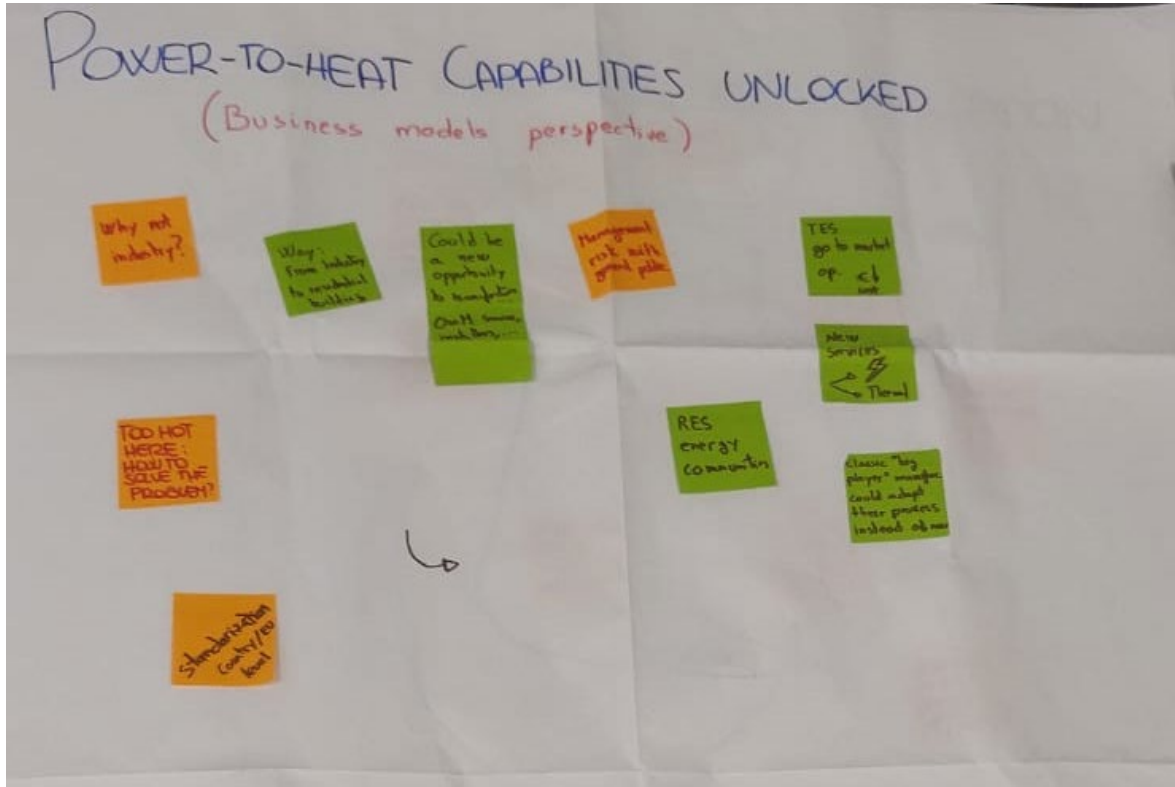 POWER-TO-HEAT CAPABILITIES UNLOCKED
(Business models perspective)
Why not
industry?
Way:
From industry
to residential
buildings
Could be
a new
opportunity
to
O&M
Management
risk with
general public
TES
go to market
op.
New
services
Thermal
TOO HOT
HERE:
HOW TO
SOLVE THE
PROBLEM?
RES
energy
communities
classic "big
player"
could adapt
their process
instead of new
Standarization
Country/EU
level